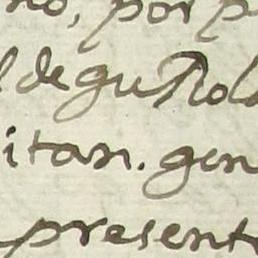 no, por p
l de gu Rola
itan. gen
presente